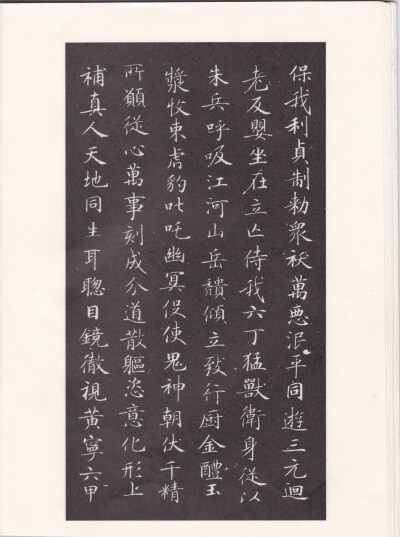 保我利貞制勑眾祅萬惡泯平同遊三元迴
老反嬰坐在立亾侍我六丁猛獸衛身從以
朱兵呼吸江河山岳穨傾立致行厨金醴玉
漿收束虎豹叱吒幽冥役使鬼神朝伏千精
所願從心萬事刻成分道散軀恣意化形上
補真人天地同生耳聰目鏡徹視黃寧六甲